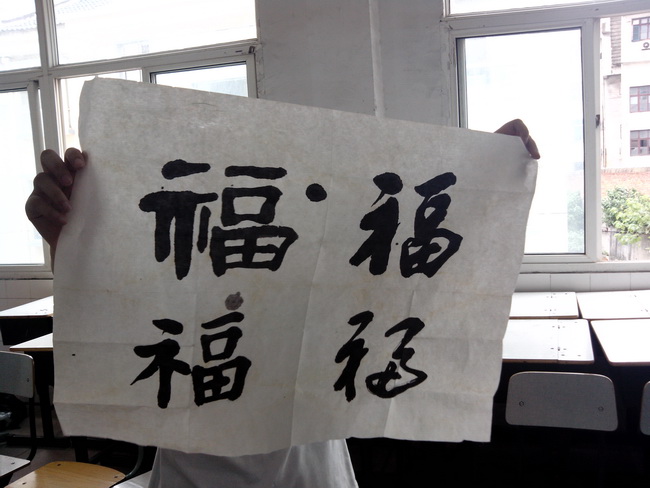 福福
福福